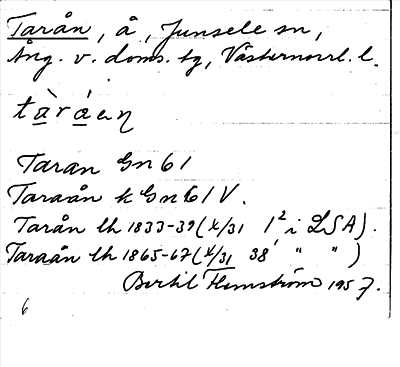 Tarån, å, Junsele sn,
Ång. v. doms. tg, Västernorrl. l.
tàráen
Taran Gn 61
Taraån k Gn 61 V.
Tarån lh 1833-39 (X/31 1² i LSA).
Taraån lh 1865-67 (X/31 38 " ")
Bertil Flemström 1957.
6